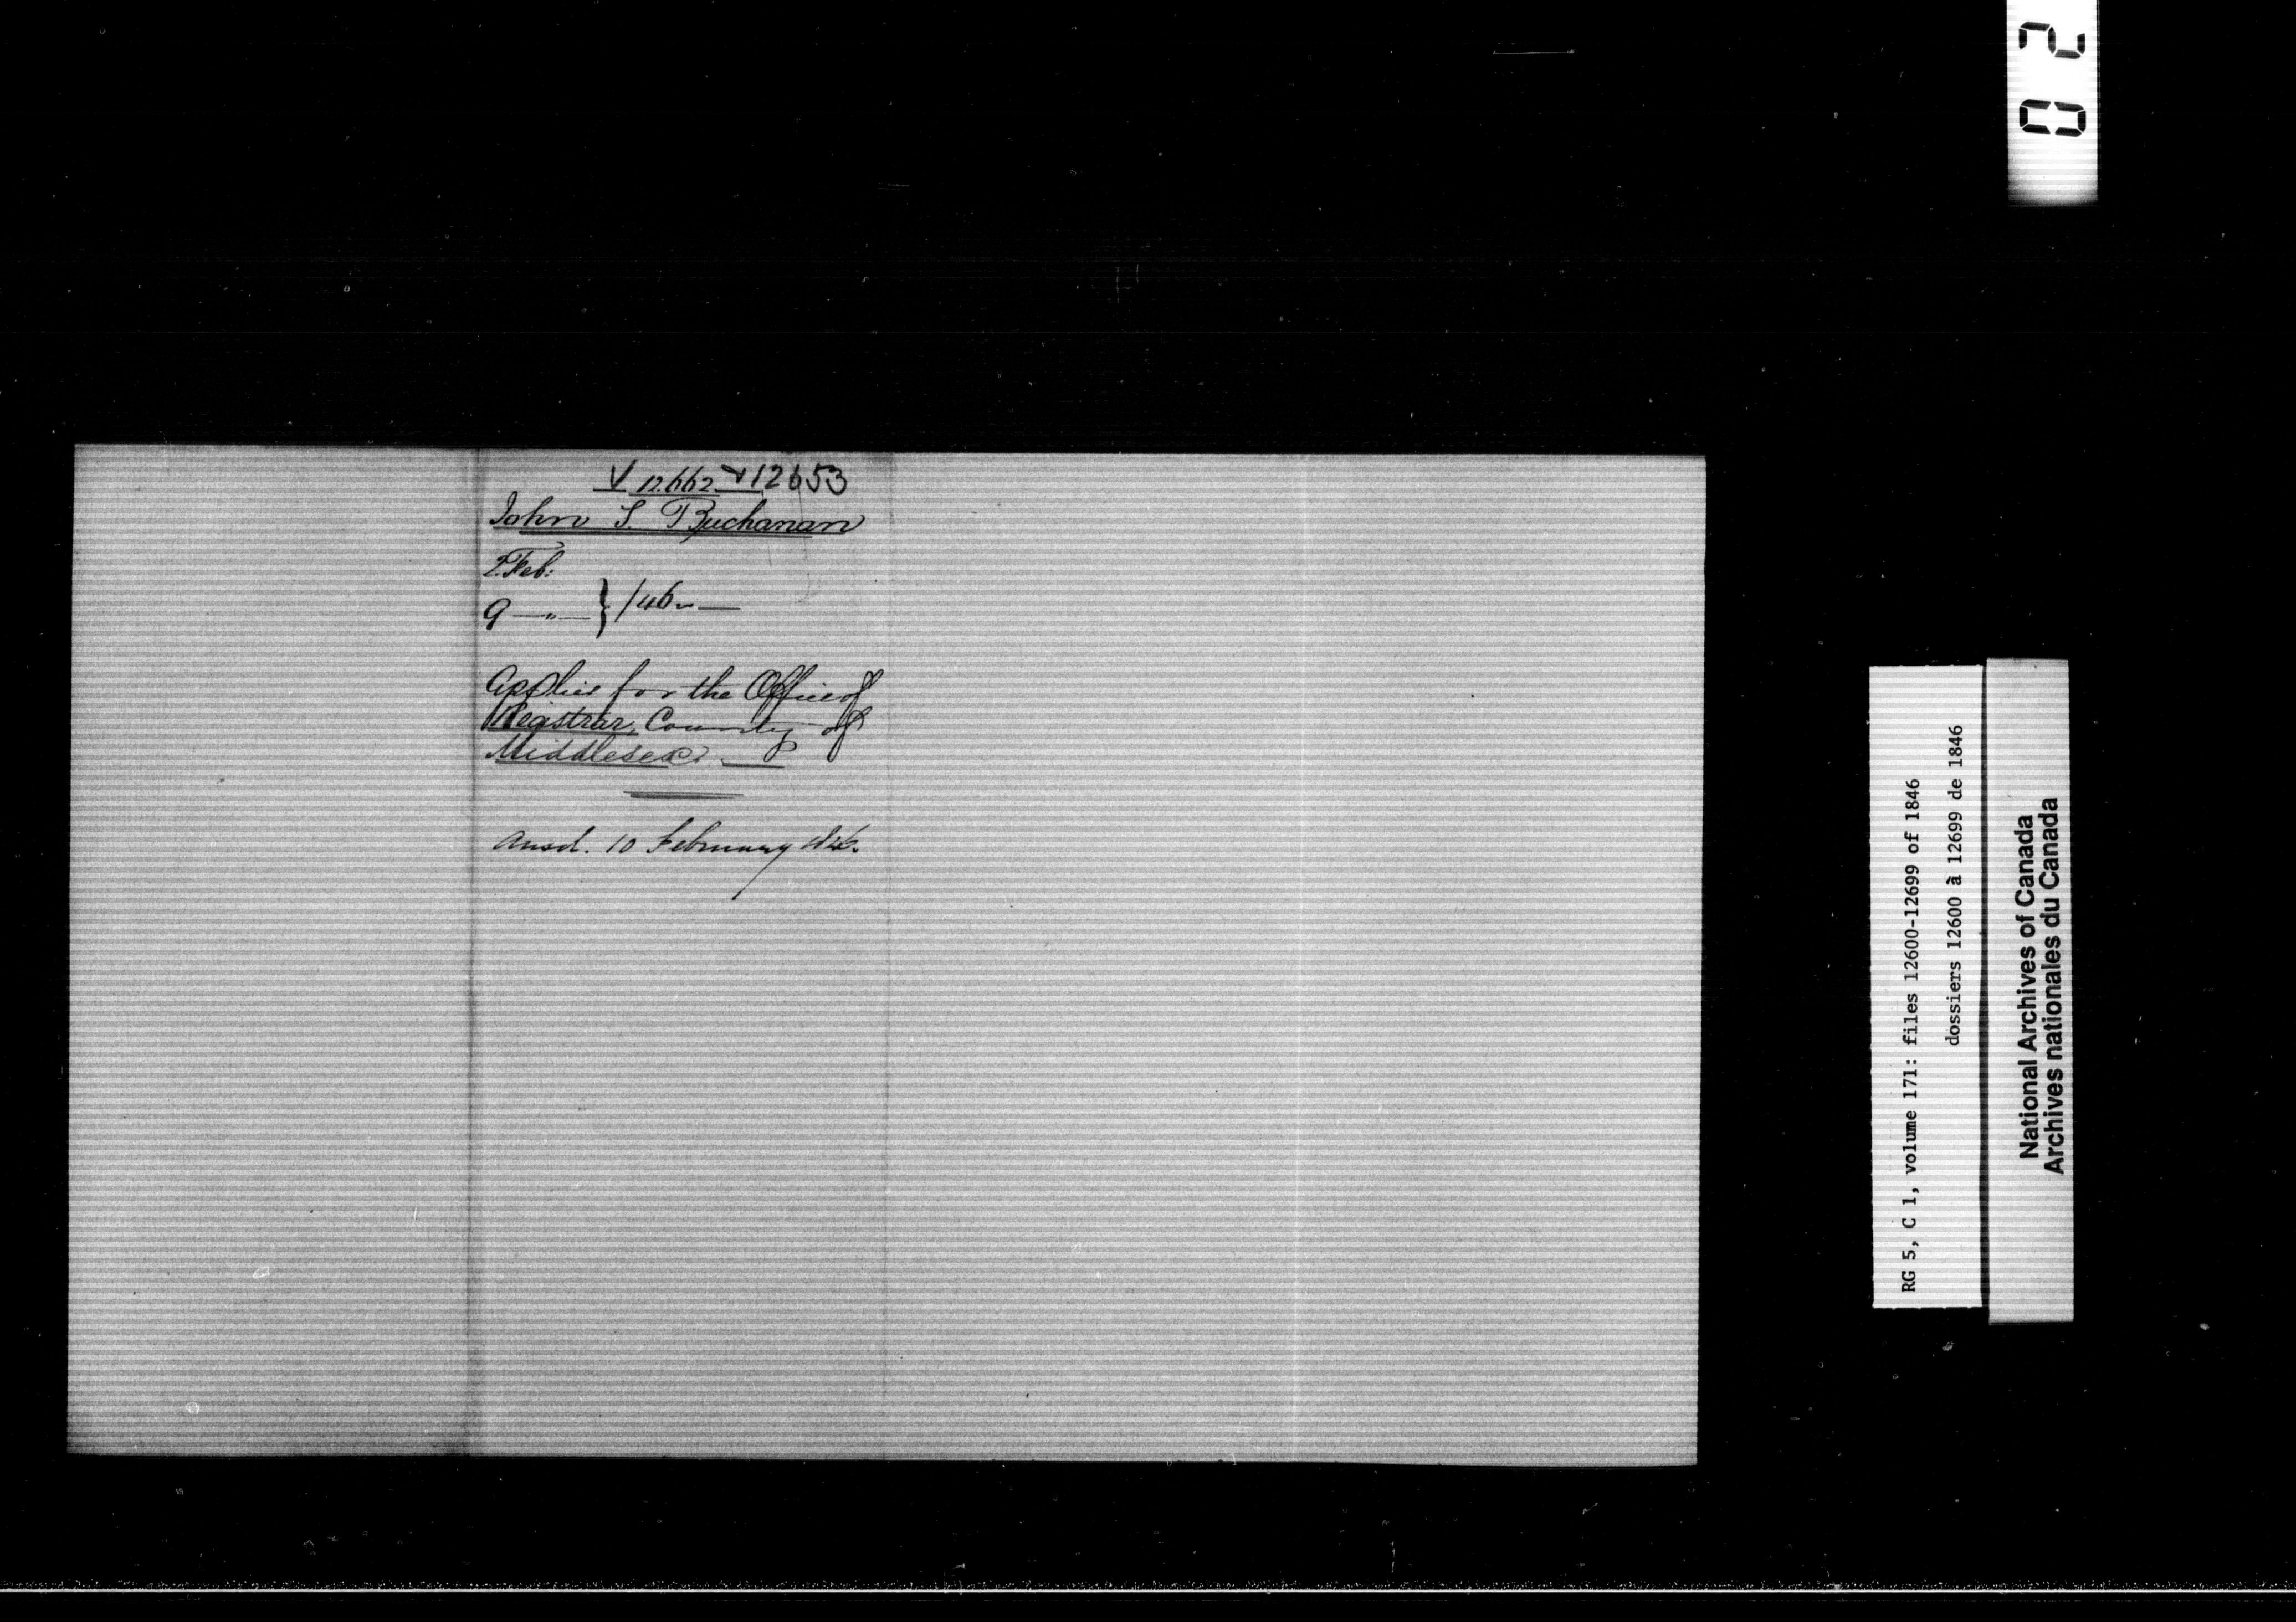 V 12.662 + 12653
John S. Buchanan
2 Feb:
9 —"— } /46 —
Applies for the Office of
Registrar, County of
Middlesex. —
Ansd. 10 February 1846.
02
RG 5, C 1, volume 171: files 12600-12699 of 1846
dossiers 12600 à 12699 de 1846
National Archives of Canada
Archives nationales du Canada